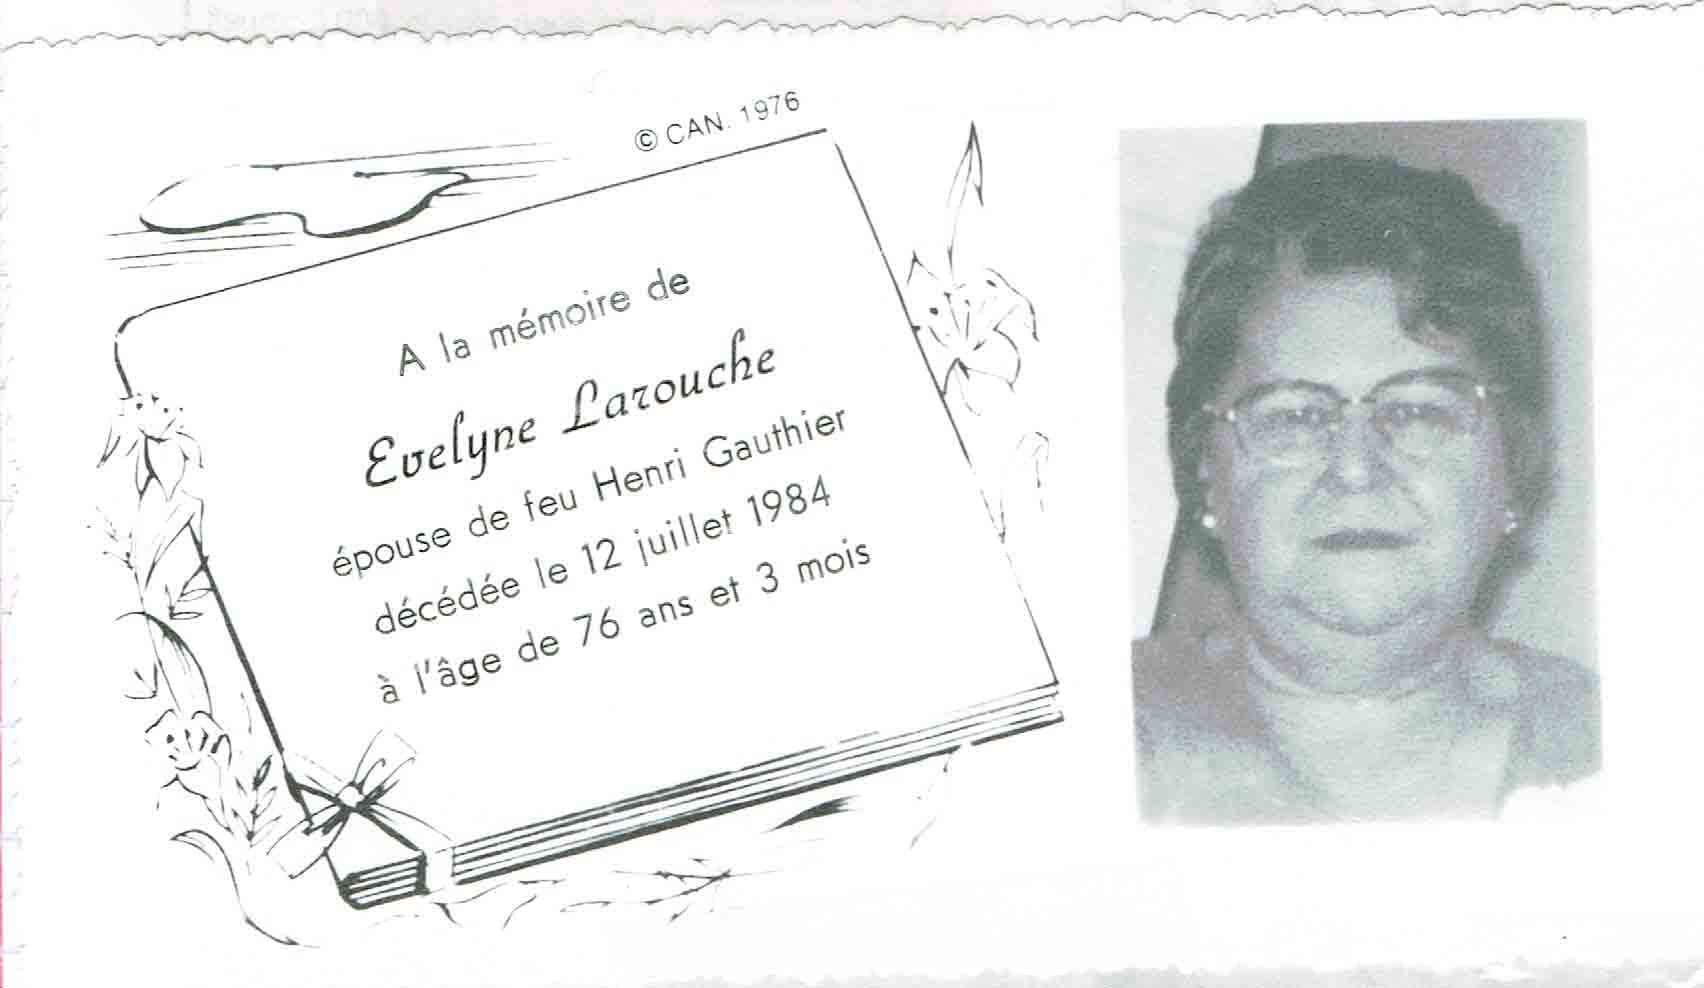 © CAN. 1976
A la mémoire de
Evelyne Larouche
épouse de feu Henri Gauthier
décédée le 12 juillet 1984
à l'âge de 76 ans et 3 mois